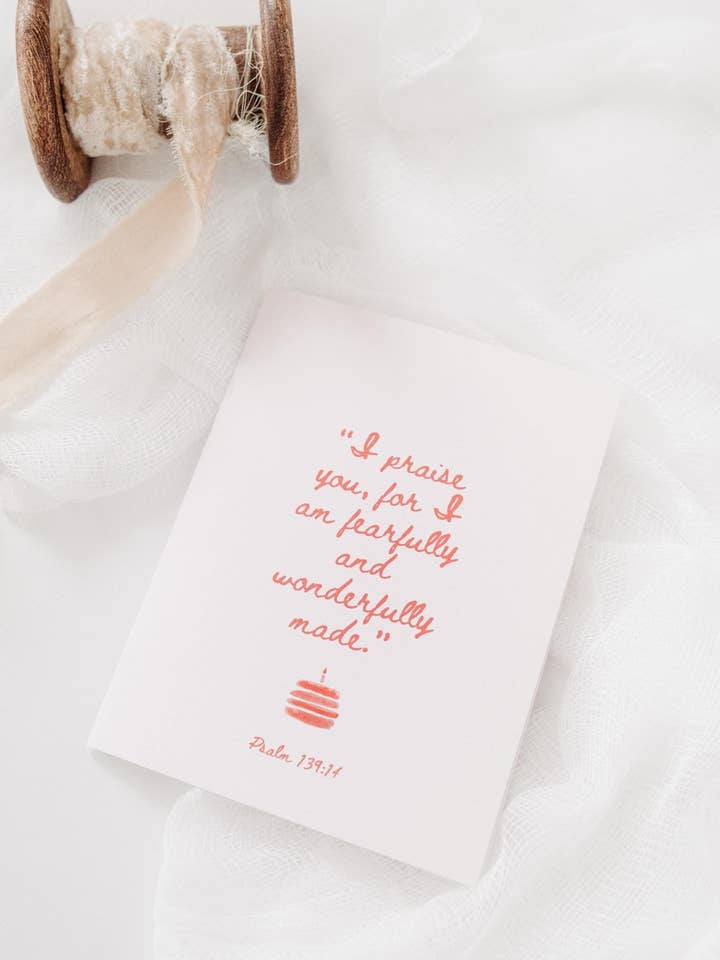 "I praise
you, for I
am fearfully
and
wonderfully
made."
Psalm 139:14